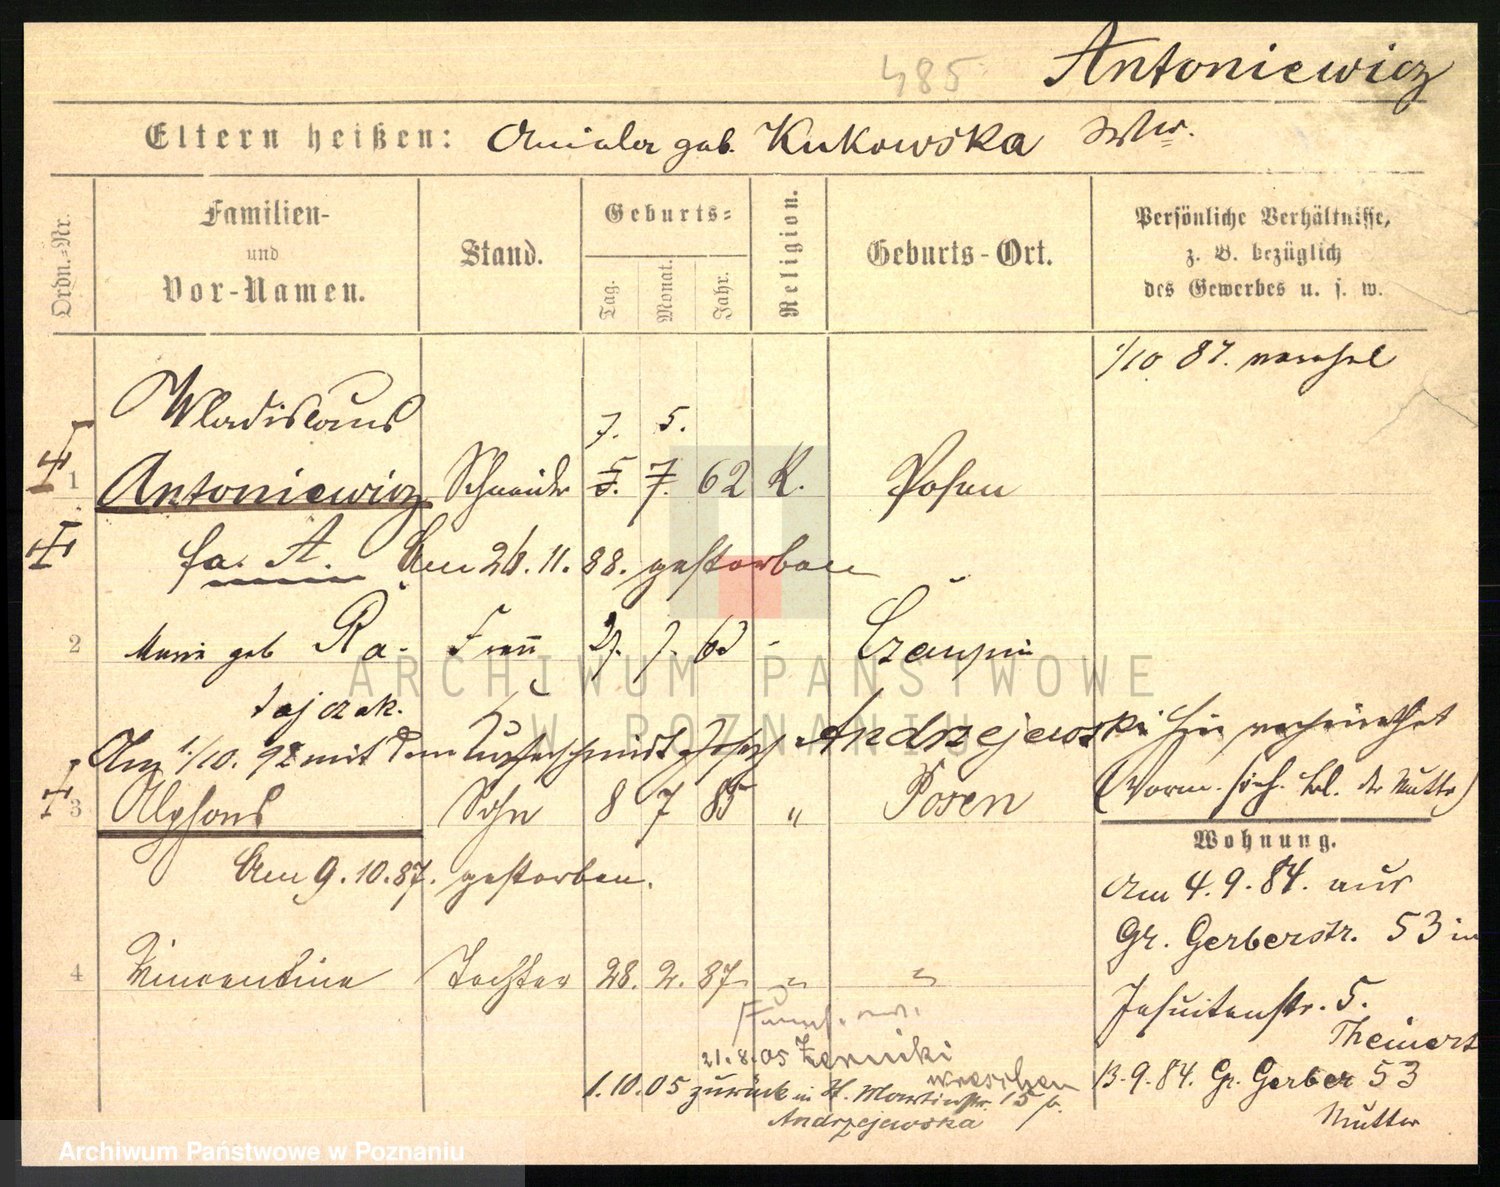 485
Antoniewicz
Eltern heißen: Amalia geb. Kukowska Wtw.
Ordn.=Nr.
Familien- und Vor-Namen.
Stand.
Geburts=
Tag. Monat. Jahr.
Religion.
Geburts-Ort.
Persönliche Verhältnisse,
z. B. bezüglich
des Gewerbes u. s. w.
1/10 87.
Wladislaus
7. 5.
1 Antoniewicz Schneider 5. 7. 62 K. Posen
fa. A. Am 26. 11. 88. gestorben
2 Marie geb Ra- Frau 27. 7. 63 -
tajczak.
Am 1./10. 92 mit dem Kupferschmidt Josef Andrzejewski hier verheirathet
3 Alphons Sohn 8 7 85 " Posen
(Vorm. sich. bel. der Mutter)
Am 9. 10. 87. gestorben.
4 Vincentine Tochter 28. 2. 87 " "
21. 8. 05 Zerniki
Wreschen
1. 10. 05 zurück in St. Martinstr. 15 b.
Andrzejewska
Wohnung.
Am 4. 9. 84. aus
Gr. Gerberstr. 53 in
Jesuitenstr. 5.
Theinert
13. 9. 84. Gr. Gerber 53
Mutter
ARCHIWUM PAŃSTWOWE
W POZNANIU
Archiwum Państwowe w Poznaniu